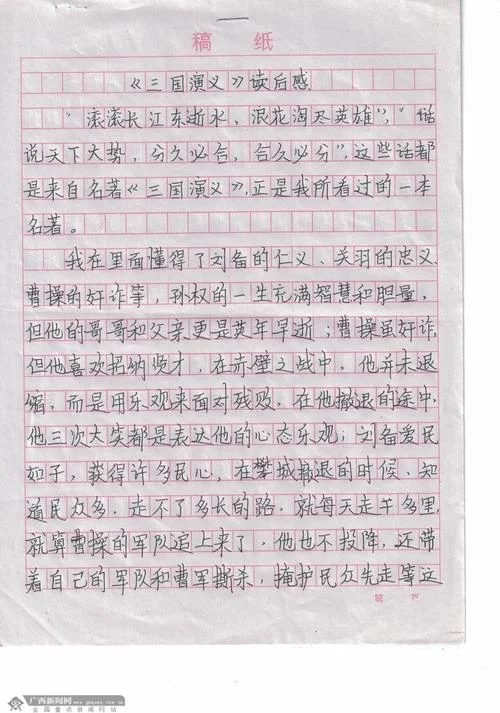 稿 纸
《三国演义》读后感
“滚滚长江东逝水，浪花淘尽英雄”，“话
说天下大势，分久必合，合久必分”，这些话都
是来自名著《三国演义》，正是我所看过的一本
名著。
我在里面懂得了刘备的仁义、关羽的忠义、
曹操的奸诈等，孙权的一生充满智慧和胆量，
但他的哥哥和父亲更是英年早逝；曹操虽奸诈，
但他喜欢招纳贤才，在赤壁之战中，他并未退
缩，而是用乐观来面对残败，在他撤退的途中，
他三次大笑都是表达他的心态乐观；刘备爱民
如子，获得许多民心，在樊城撤退的时候，知
道民众多，走不了多长的路，就每天走十多里，
就算曹操的军队追上来了，他也不投降，还带
着自己的军队和曹军撕杀，掩护民众先走等这
第 页
广西新闻网
www.gxnews.com.cn
全国重点新闻网站